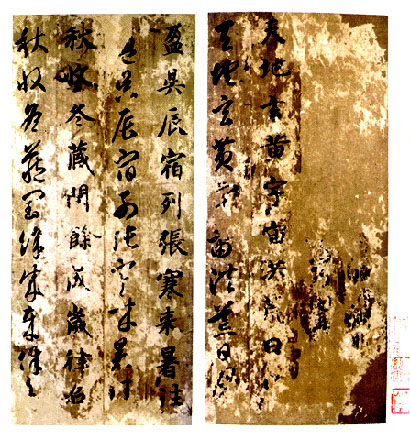 天地玄黄宇宙洪荒日
天地玄黄宇宙洪荒日月
盈昃辰宿列張寒来暑往
盈昃辰宿列張寒来暑往
秋收冬藏閏餘成歲律召
秋收冬藏閏餘成歲律召